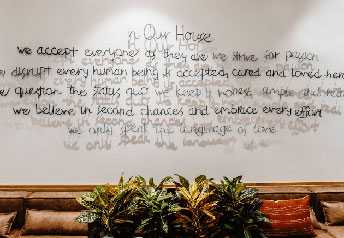 in Our House
we accept everyone as they are we strive for passion
we disrupt every human being is accepted, cared and loved here
we question the status quo we keep it honest, simple and
we believe in second chances and embrace every effort
we only speak the language of love